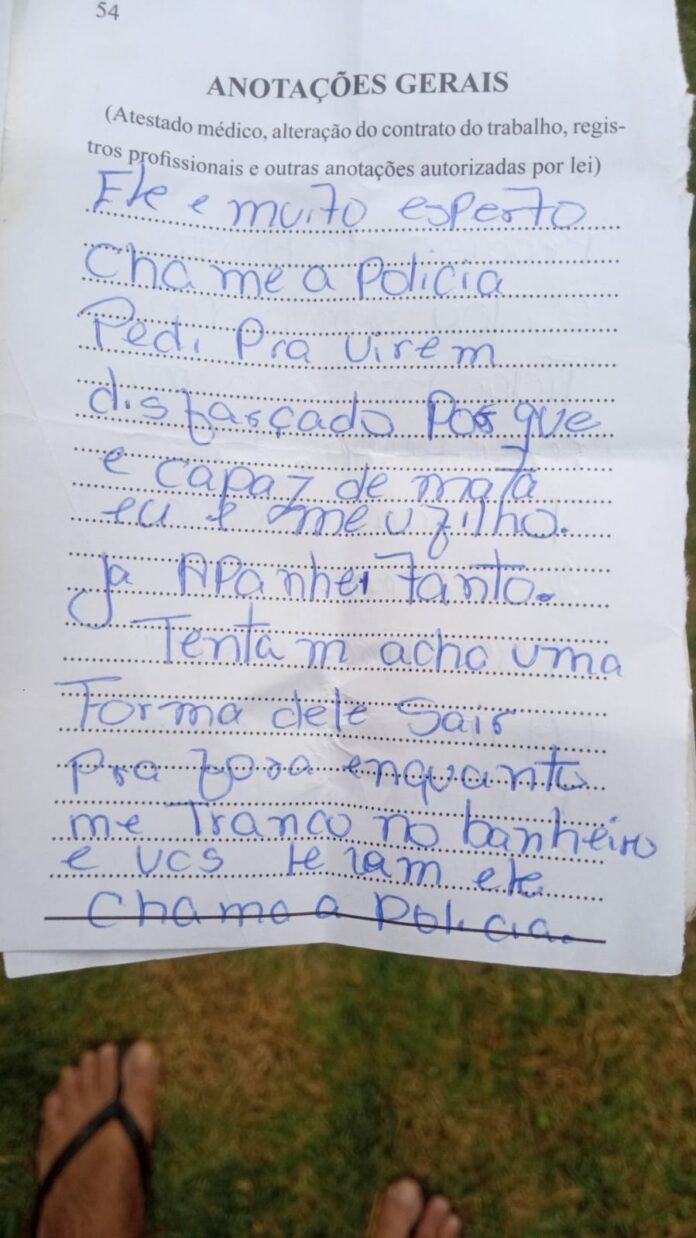 54
ANOTAÇÕES GERAIS
(Atestado médico, alteração do contrato do trabalho, regis-
tros profissionais e outras anotações autorizadas por lei)
Ele e muito esperto
Chame a Policia
Pedi Pra virem
disfarçado Porque
e capaz de mata
eu e meu filho.
Ja APanhei Tanto.
Tenta m acho uma
Forma dele Sair
pra fora enquanto
me Tranco no banheiro
e vcs ele
Chame a Policia.